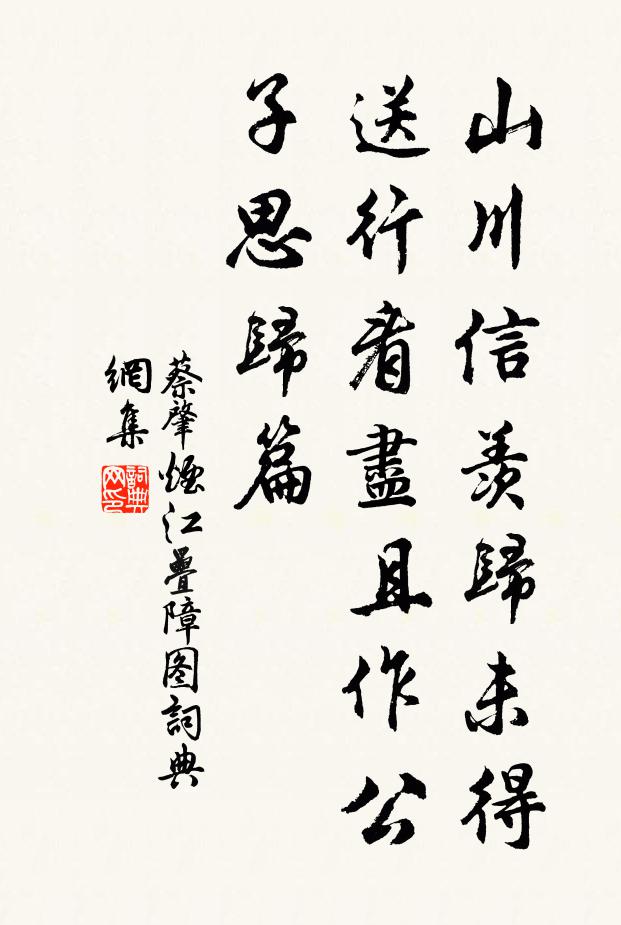 山川信羨歸未得
送行看盡且作公
子思歸篇
蔡肇煙江疊障图詞典
網集
詞典
网印